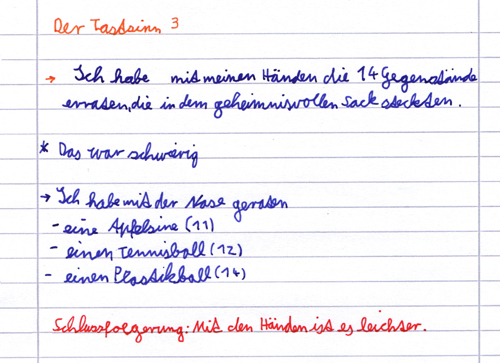 Der Tastsinn 3
→ Ich habe mit meinen Händen die 14 Gegenstände
erraten, die in dem geheimnisvollen Sack steckten.
* Das war schwierig
→ Ich habe mit der Nase geraten
- eine Apfelsine (11)
- einen Tennisball (12)
- einen Plastikball (14)
Schlussfolgerung: Mit den Händen ist es leichter.